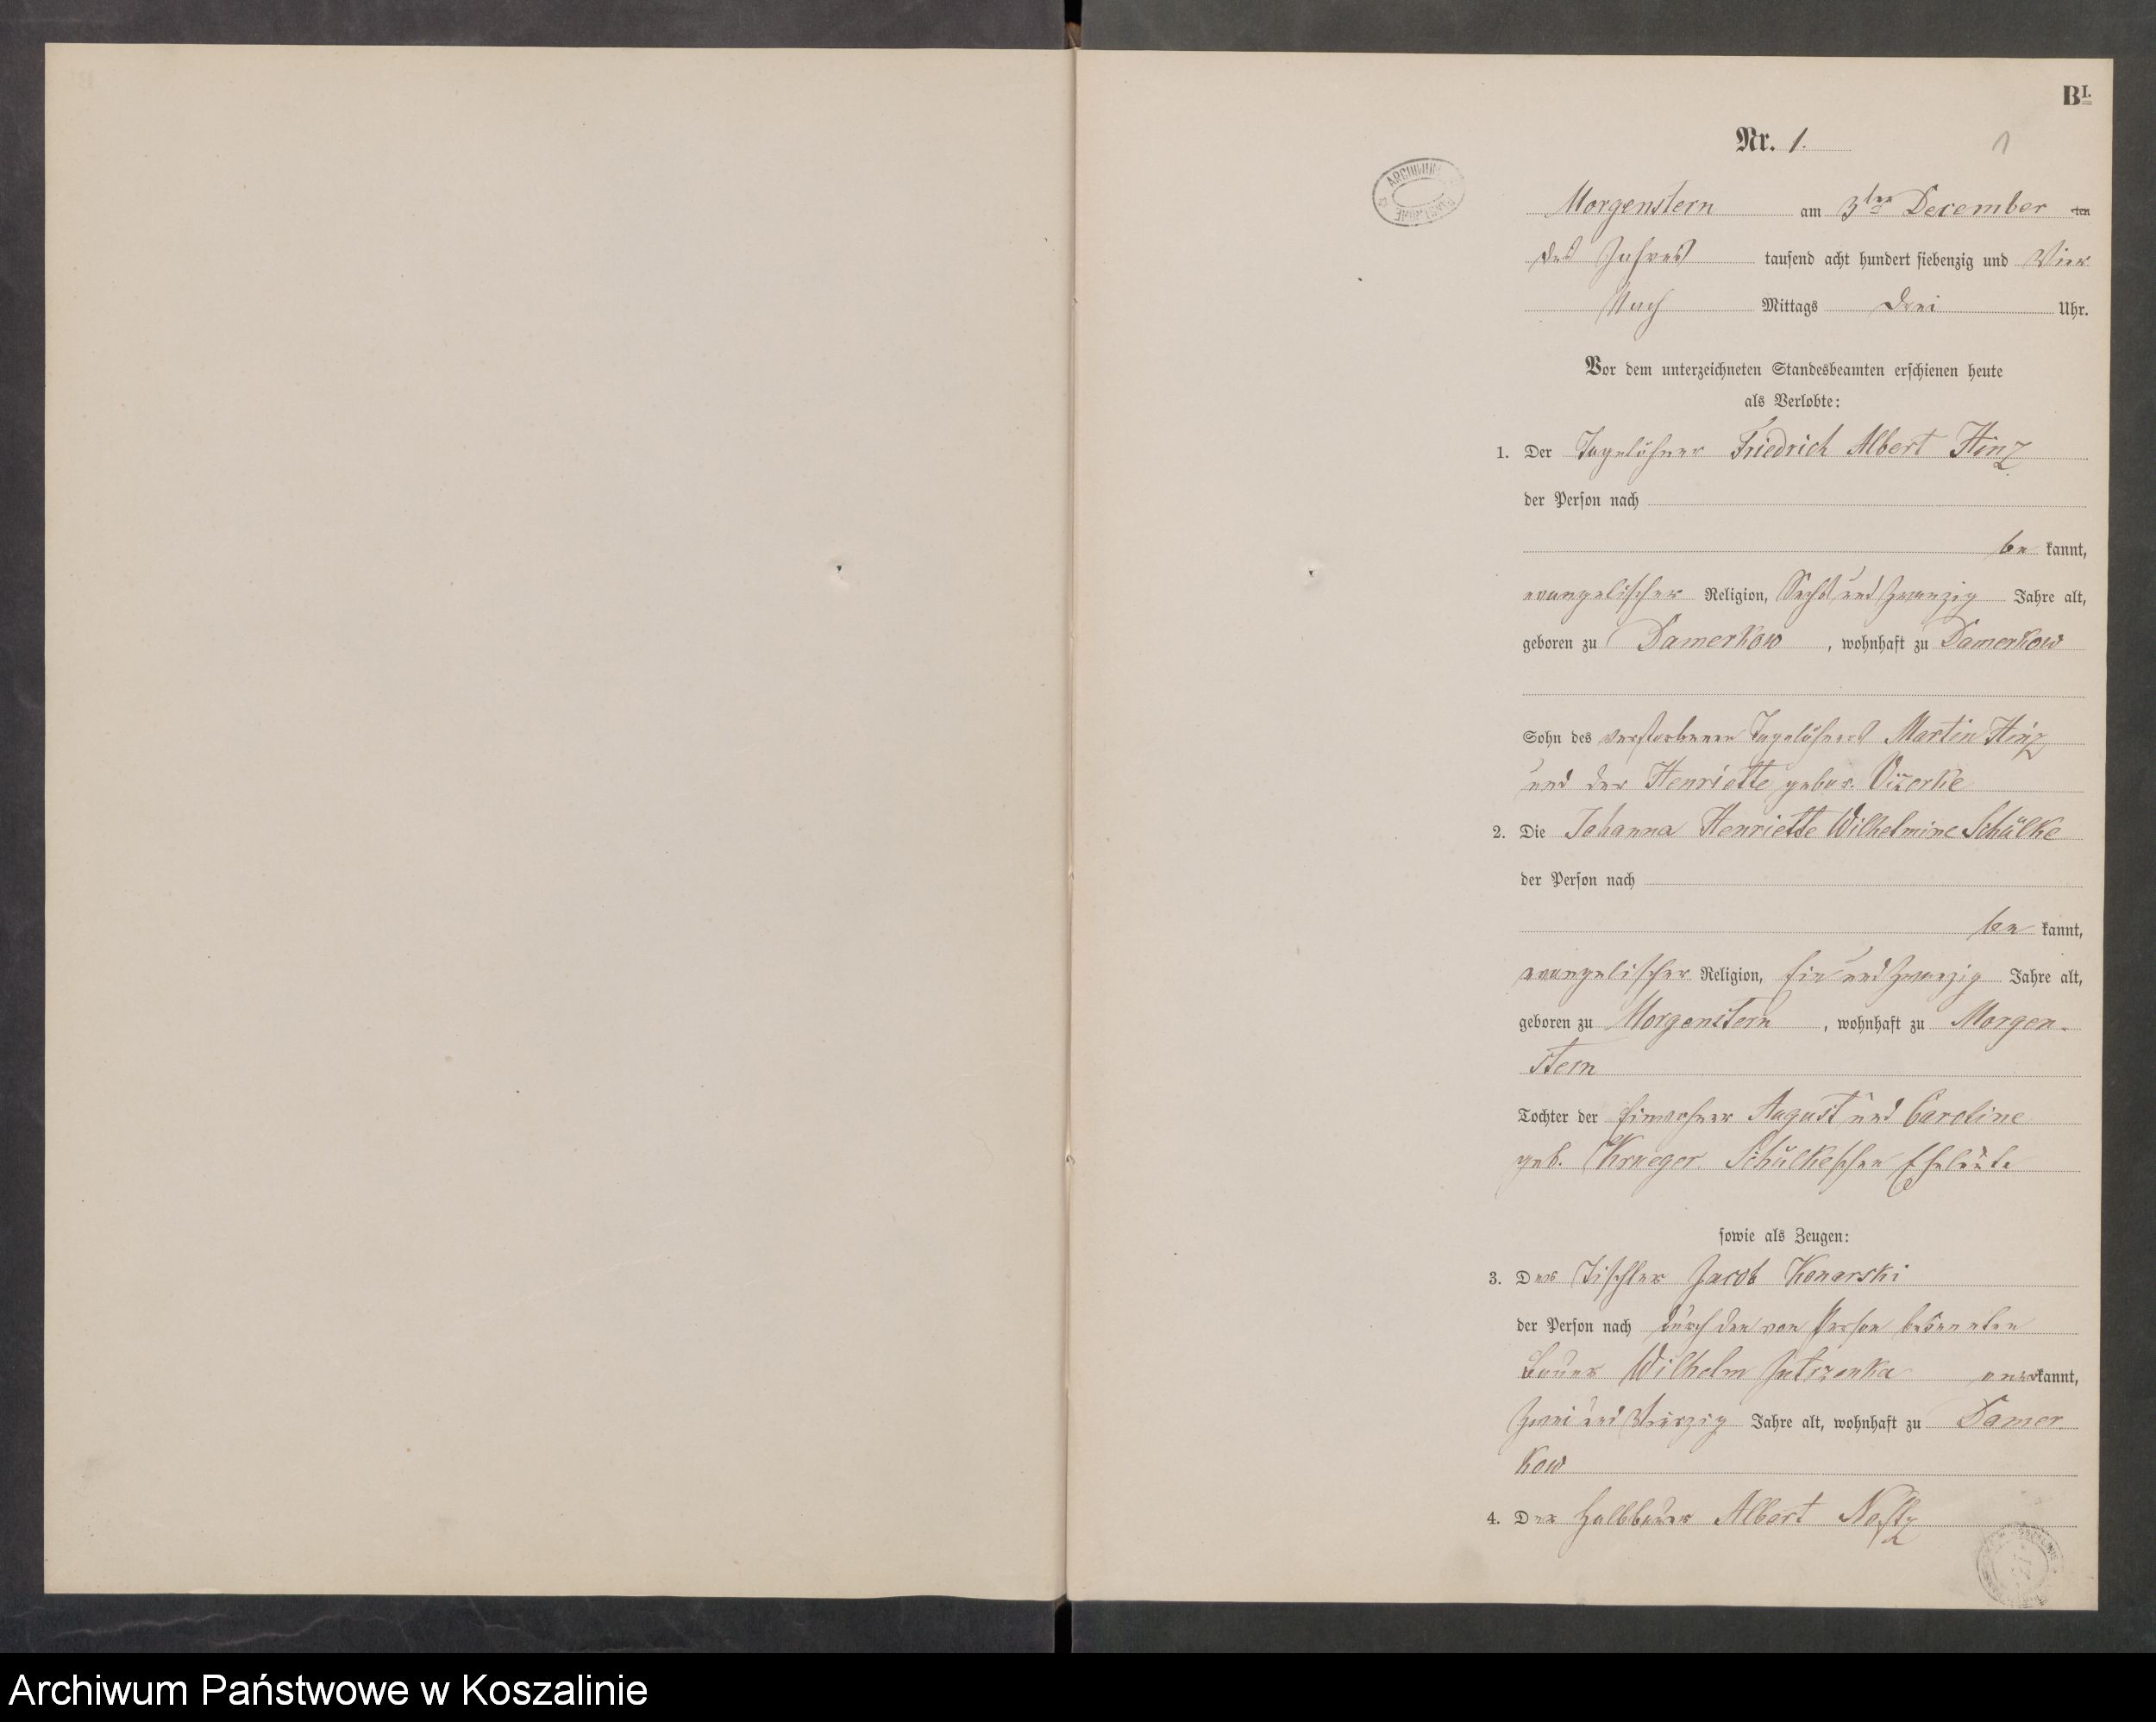 B I.
Nr. 1.
1
ARCHIWUM
Morgenstern am 3ten December ten
des Jahres tausend acht hundert siebenzig und Vier
Nach Mittags drei Uhr.
Vor dem unterzeichneten Standesbeamten erschienen heute
als Verlobte:
1. Der Tagelöhner Friedrich Albert Hinz
der Person nach
be kannt,
evangelischer Religion, Sechs und zwanzig Jahre alt,
geboren zu Damerkow, wohnhaft zu Damerkow
Sohn des verstorbenen Tagelöhners Martin Hinz
und der Henriette gebor. Vizerke
2. Die Johanna Henriette Wilhelmine Schülke
der Person nach
be kannt,
evangelischer Religion, Ein und zwanzig Jahre alt,
geboren zu Morgenstern, wohnhaft zu Morgen-
stern
Tochter der Einwohner August und Caroline
geb. Krueger Schülkeschen Eheleute
sowie als Zeugen:
3. Der Tischler Jacob Konarski
der Person nach durch den von Person bekannten
Bauer Wilhelm Jutrzenka anerkannt,
zwei und vierzig Jahre alt, wohnhaft zu Damer
kow
4. Der Halbbauer Albert
Archiwum Państwowe w Koszalinie